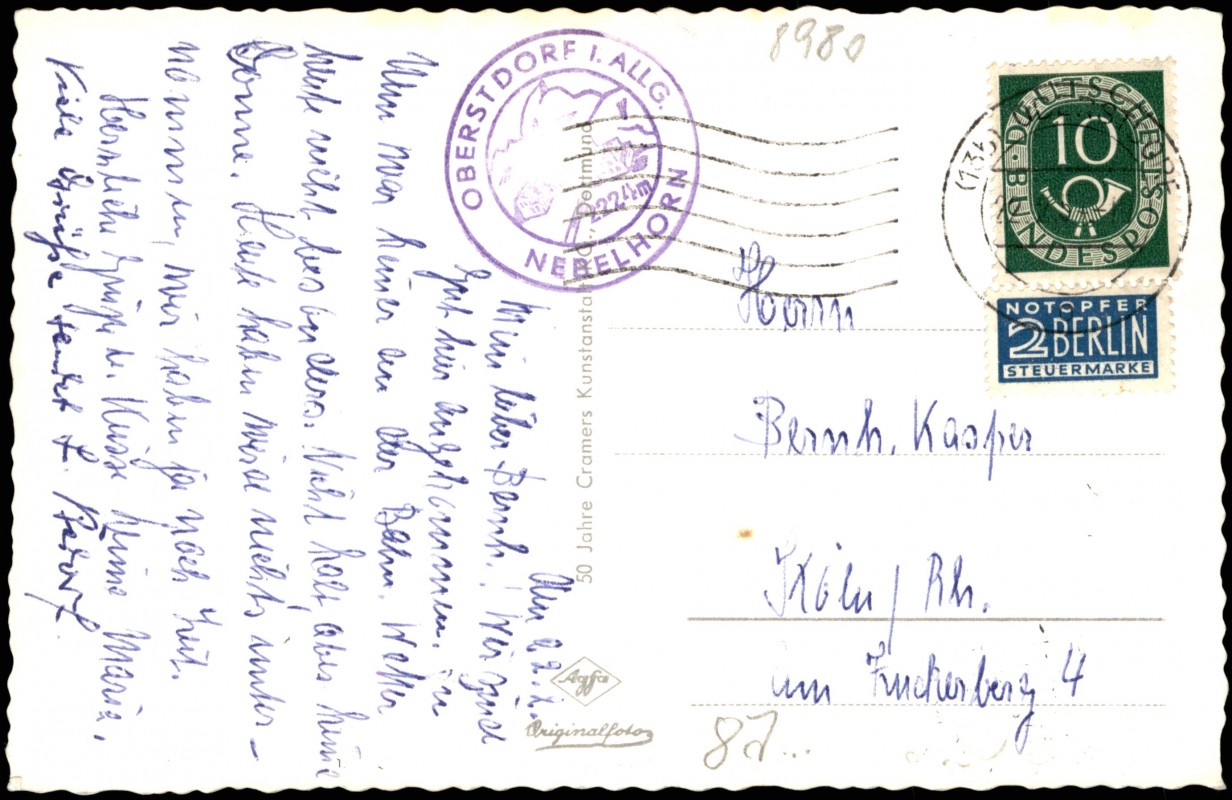 8980
OBERSTDORF I. ALLG.
2224m
NEBELHORN
DEUTSCHE
10
BUNDESPOST
NOTOPFER
2 BERLIN
STEUERMARKE
Herrn
Bernh. Kasper
Köln/Rh.
am Zuckerberg 4
87
50 Jahre Cramers Kunstanstalt Dortmund
Agfa
Originalfoto
Mein lieber Bernh.! Wir sind
gut hier angekommen. in
Ulm war keiner an der Bahn. Wetter
heute nicht besonders. Nicht kalt, aber keine
Sonne. Heute haben wir nichts unter-
nommen, wir haben ja noch Zeit.
Herzliche Grüße u. Küsse Deine Maria.
Viele Grüße sendet